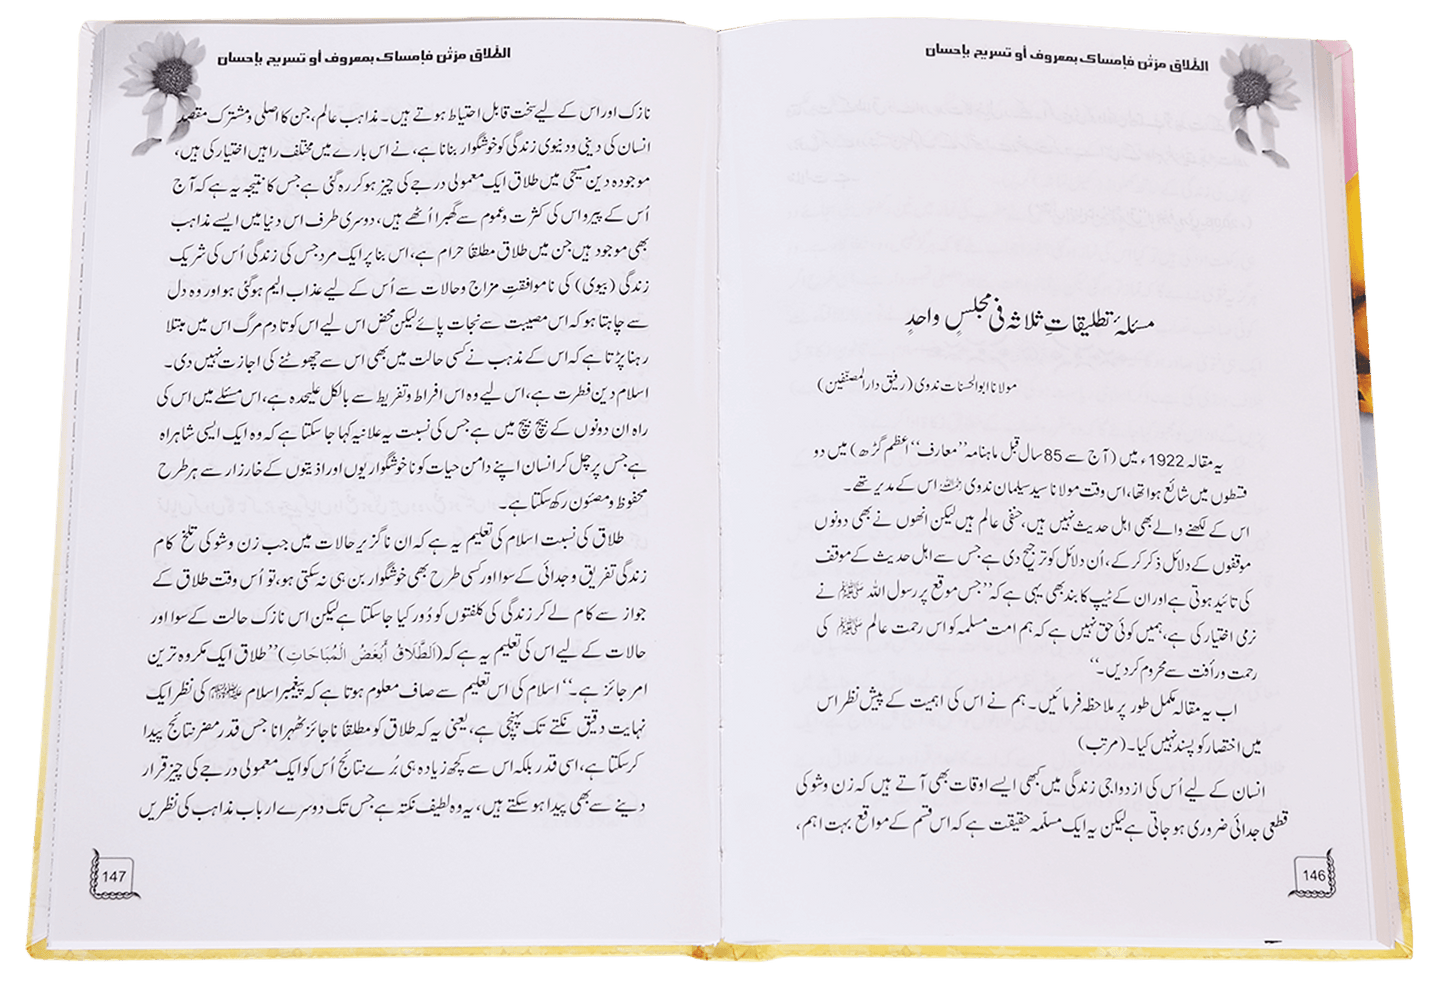 الطلاق مرتٰن فإمساک بمعروف أو تسریح بإحسان
مسئلۂ تطلیقاتِ ثلاثہ فی مجلسٍ واحدٍ
مولانا ابوالحسنات ندوی (رفیق دارالمصنّفین)
یہ مقالہ 1922ء میں (آج سے 85 سال قبل ماہنامہ ’’معارف‘‘ اعظم گڑھ) میں دو
قسطوں میں شائع ہوا تھا، اس وقت مولانا سید سلیمان ندوی رحمہ اللہ اس کے مدیر تھے۔
اس کے لکھنے والے بھی اہل حدیث نہیں ہیں، حنفی عالم ہیں لیکن انھوں نے بھی دونوں
موقفوں کے دلائل ذکر کرکے، اُن دلائل کو ترجیح دی ہے جس سے اہل حدیث کے موقف
کی تائید ہوتی ہے اور ان کے ٹیپ کا بند بھی یہی ہے کہ ’’جس موقع پر رسول اللہ ﷺ نے
نرمی اختیار کی ہے، ہمیں کوئی حق نہیں ہے کہ ہم امت مسلمہ کو اس رحمت عالم ﷺ کی
رحمت و رأفت سے محروم کردیں۔‘‘
اب یہ مقالہ مکمل طور پر ملاحظہ فرمائیں۔ ہم نے اس کی اہمیت کے پیش نظر اس
میں اختصار کو پسند نہیں کیا۔ (مرتب)
انسان کے لیے اُس کی ازدواجی زندگی میں کبھی ایسے اوقات بھی آتے ہیں کہ زن و شو کی
قطعی جدائی ضروری ہو جاتی ہے لیکن یہ ایک مسلّمہ حقیقت ہے کہ اس قسم کے مواقع بہت اہم،
146
الطلاق مرتٰن فإمساک بمعروف أو تسریح بإحسان
نازک اور اس کے لیے سخت قابل احتیاط ہوتے ہیں۔ مذاہب عالم، جن کا اصلی و مشترک مقصد
انسان کی دینی و دنیوی زندگی کو خوشگوار بنانا ہے، نے اس بارے میں مختلف راہیں اختیار کی ہیں،
موجودہ دین مسیحی میں طلاق ایک معمولی درجے کی چیز ہو کر رہ گئی ہے جس کا نتیجہ یہ ہے کہ آج
اُس کے پیرو اس کی کثرت و عموم سے گھبرا اُٹھے ہیں، دوسری طرف اس دنیا میں ایسے مذاہب
بھی موجود ہیں جن میں طلاق مطلقًا حرام ہے، اس بنا پر ایک مرد جس کی زندگی اُس کی شریک
زندگی (بیوی) کی ناموافقتِ مزاج و حالات سے اُس کے لیے عذاب الیم ہوگئی ہو اور وہ دل
سے چاہتا ہو کہ اس مصیبت سے نجات پائے لیکن محض اس لیے اس کو تا دم مرگ اس میں مبتلا
رہنا پڑتا ہے کہ اس کے مذہب نے کسی حالت میں بھی اس سے چھوٹنے کی اجازت نہیں دی۔
اسلام دین فطرت ہے، اس لیے وہ اس افراط و تفریط سے بالکل علیحدہ ہے، اس مسئلے میں اس کی
راہ ان دونوں کے بیچ بیچ میں ہے جس کی نسبت یہ علانیہ کہا جا سکتا ہے کہ وہ ایک ایسی شاہراہ
ہے جس پر چل کر انسان اپنے دامن حیات کو ناخوشگواریوں اور اذیتوں کے خارزار سے ہر طرح
محفوظ و مصئون رکھ سکتا ہے۔
طلاق کی نسبت اسلام کی تعلیم یہ ہے کہ ان ناگزیر حالات میں جب زن و شو کی تلخ کام
زندگی تفریق و جدائی کے سوا اور کسی طرح بھی خوشگوار بن ہی نہ سکتی ہو، تو اُس وقت طلاق کے
جواز سے کام لے کر زندگی کی کلفتوں کو دُور کیا جا سکتا ہے لیکن اس نازک حالت کے سوا اور
حالات کے لیے اس کی تعلیم یہ ہے کہ (اَلطَّلَاقُ أَبْغَضُ الْمُبَاحَاتِ) ’’طلاق ایک مکروہ ترین
امر جائز ہے۔‘‘ اسلام کی اس تعلیم سے صاف معلوم ہوتا ہے کہ پیغمبر اسلام ﷺ کی نظر ایک
نہایت دقیق نکتے تک پہنچی ہے، یعنی یہ کہ طلاق کو مطلقًا ناجائز ٹھہرانا جس قدر مضر نتائج پیدا
کرسکتا ہے، اسی قدر بلکہ اس سے کچھ زیادہ ہی بُرے نتائج اُس کو ایک معمولی درجے کی چیز قرار
دینے سے بھی پیدا ہو سکتے ہیں، یہ وہ لطیف نکتہ ہے جس تک دوسرے ارباب مذاہب کی نظریں
147